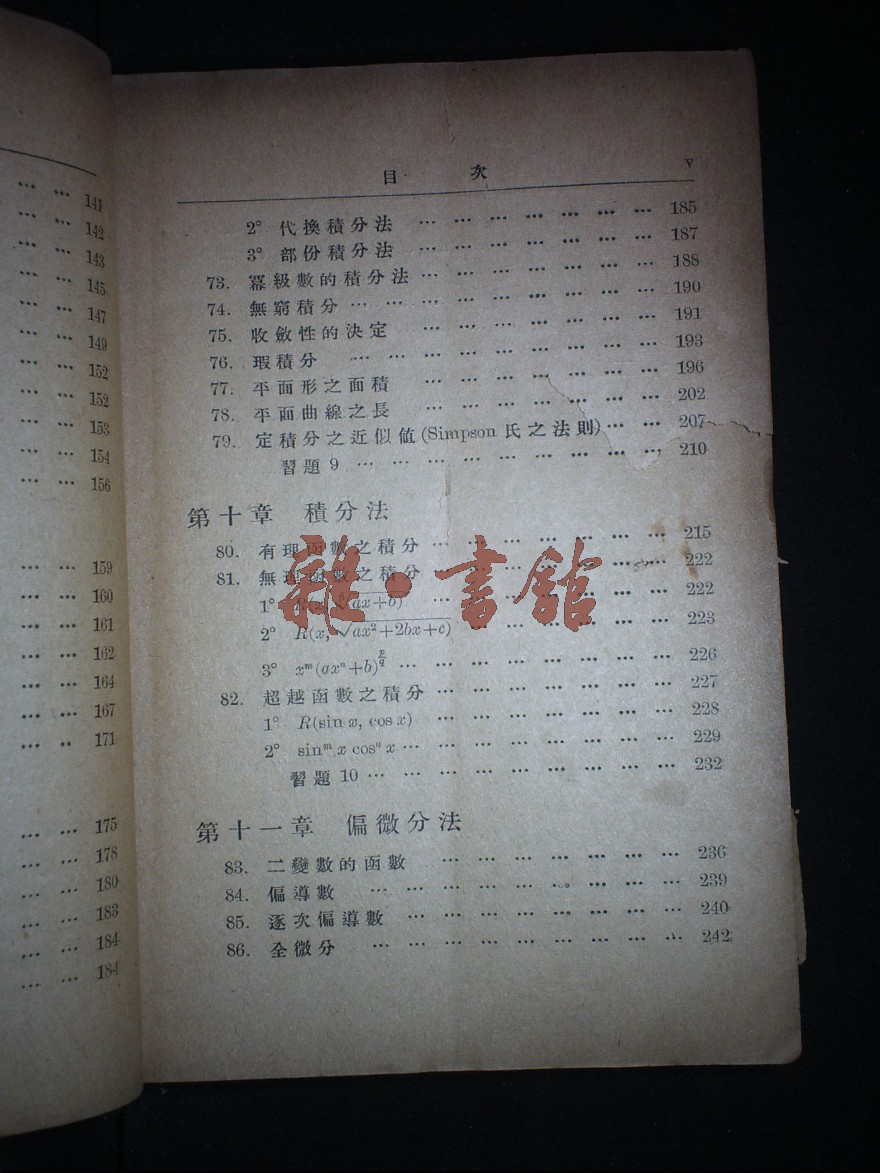 141
142
143
145
147
149
152
152
153
154
156
159
160
161
162
164
167
171
175
178
180
183
184
184
目 次 v
2° 代換積分法 … … … … … … … 185
3° 部份積分法 … … … … … … … 187
73. 冪級數的積分法 … … … … … … … 188
74. 無窮積分 … … … … … … … … … 190
75. 收斂性的決定 … … … … … … … 191
76. 瑕積分 … … … … … … … … … 193
77. 平面形之面積 … … … … … … … 196
78. 平面曲線之長 … … … … … … … 202
79. 定積分之近似值(Simpson 氏之法則) … … … 207
習題 9 … … … … … … … … … 210
第十章 積分法
80. 有理函數之積分 … … … … … … … 215
81. 無理函數之積分 … … … … … … … 222
1° R(x, ax+b) … … … … … … … 222
2° R(x, √ax²+2bx+c) … … … … … … 223
3° xᵐ(axⁿ+b)^(p/q) … … … … … … … … 226
82. 超越函數之積分 … … … … … … … 227
1° R(sin x, cos x) … … … … … … … 228
2° sinᵐ x cosⁿ x … … … … … … … … 229
習題 10 … … … … … … … … … 232
第十一章 偏微分法
83. 二變數的函數 … … … … … … … 236
84. 偏導數 … … … … … … … … … 239
85. 逐次偏導數 … … … … … … … … 240
86. 全微分 … … … … … … … … … 242
雜·書館